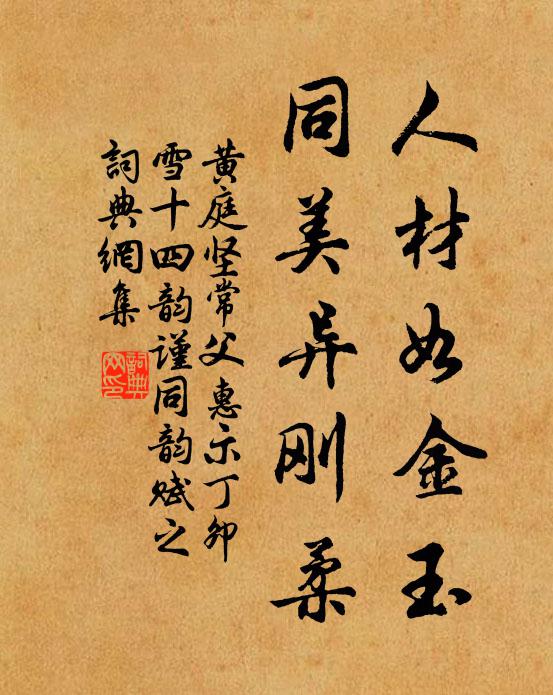 人材如金玉
同美异刚柔
黄庭坚常父惠示丁卯
雪十四韵谨同韵赋之
詞典網集
詞典网印